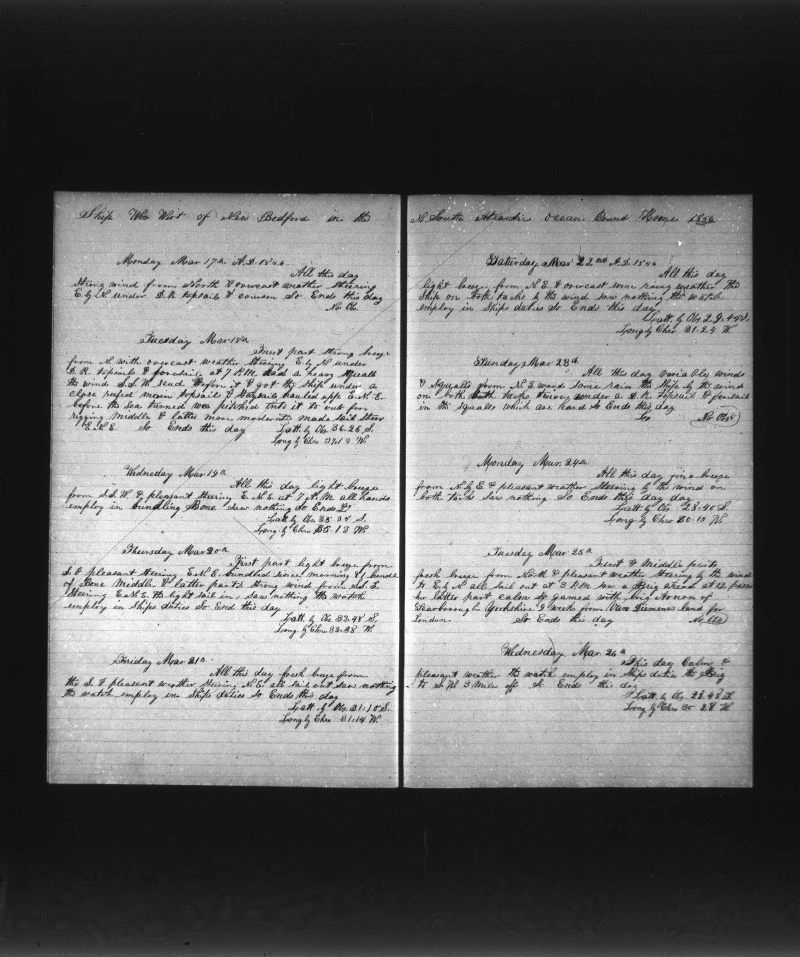 Ship Wm Wirt of New Bedford in the
Monday Mar 17th A.D. 1856
All this day
Strong wind from North & overcast weather Steering
E by N under D.R. topsails & coursen So Ends this day
No Ob.
Tuesday Mar 18th
First part strong breeze
from N with overcast weather Steering E by N under
D.R. topsails & foresail at 7 P.M. had a heavy squall
the wind S.S.W. scud before it & got the ship under a
close refed main topsail & Staysail hauled upp E.N.E.
before the Sea turned was pitched into it to out fore
rigging Middle & latter more moderate made sail Steer
E.N.E. So Ends this day Latt. by Obs. 36.25 S.
Long by Chro 37.13 W.
Wednesday Mar 19th
All this day light breeze
from S.S.W. & pleasant Steering E.N.E. at 7 A.M. all hands
employ in bundling Bone Saw nothing So Ends &c
Latt by Obs. 35.34 S.
Long. by Chro 35.13 W.
Thursday Mar 20th
First part light breeze from
S. & pleasant Steering E.N.E. bundled since morning
of Bone Middle & latter parts Strong wind from S.S.E.
Steering E.N.E. the light sail in saw nothing the watch
employ in Ships duties So End this day
Latt. by Obs 33.48 S.
Long. by Chro 33.38 W.
Friday Mar 21st
All this day fresh breeze from
the S. & pleasant weather Steering N.E. all sail out saw nothing
the watch employ in Ships duties So Ends this day
Latt. by Obs. 31.10 S.
Long by Chro 31.14 W.
N. South Atlantic Ocean Bound Home 1856
Saturday Mar 22nd A.D. 1856
All this day
light breeze from N.E. & overcast some rainy weather the
Ship on both tacks by the wind saw nothing the watch
employ in Ships duties So Ends this day
Latt. by Obs 29.44 S.
Long by Chro 31.24 W.
Sunday Mar 23th
All this day Variables winds
& Squalls from N.E. ward some rain the Ship by the wind
on both tacks under a D.R. topsail & foresail
in the Squalls which are hard So Ends this day
No Obs
Monday Mar. 24th
All this day fine breeze
from N by E & pleasant weather Steering by the wind on
both tacks Saw nothing So Ends this day
Latt by Obs 28.40 S.
Long. by Chro 30.13 W.
Tuesday Mar 25th
First & Middle parts
fresh breeze from North & pleasant weather Steering by the wind
to E by N all sail out at 3 P.M. saw a Brig ahead at 12 passed
her latter part calm & gamed with brig Arnon of
Scarborough Yorkshire 9 weeks from Vans Diemens land for
London So Ends this day No Obs
Wednesday Mar. 26th
This day Calm &
pleasant weather the watch employ in Ships duties the Brig
to S.W. 3 mile off So Ends this day
Latt by Obs 28.48 S.
Long by Chro 30.28 W.